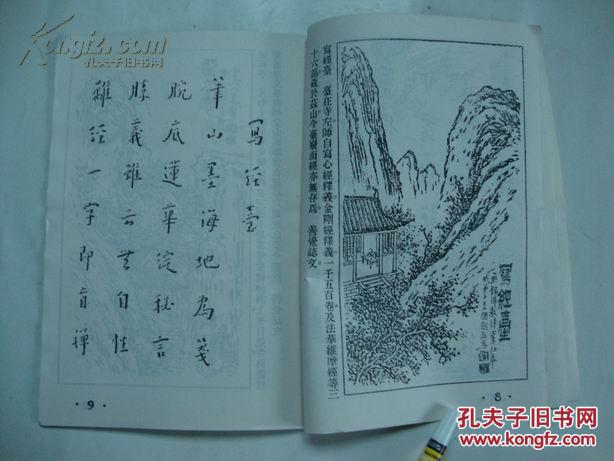 孔夫子旧书网
Kongfz.com
寫經臺
寫經臺 臺在寺左師自寫心經釋義金剛經釋義一千五百卷及法華維摩經等三
十六部藏於茲山今臺廢而經亦無存焉 善覺誌文
· 8 ·
寫經臺
筆山墨海地為箋
腕底蓮華綻秘言
勝義雖云無自性
離經一字即盲禪
· 9 ·
孔夫子旧书网
KONGFZ.COM